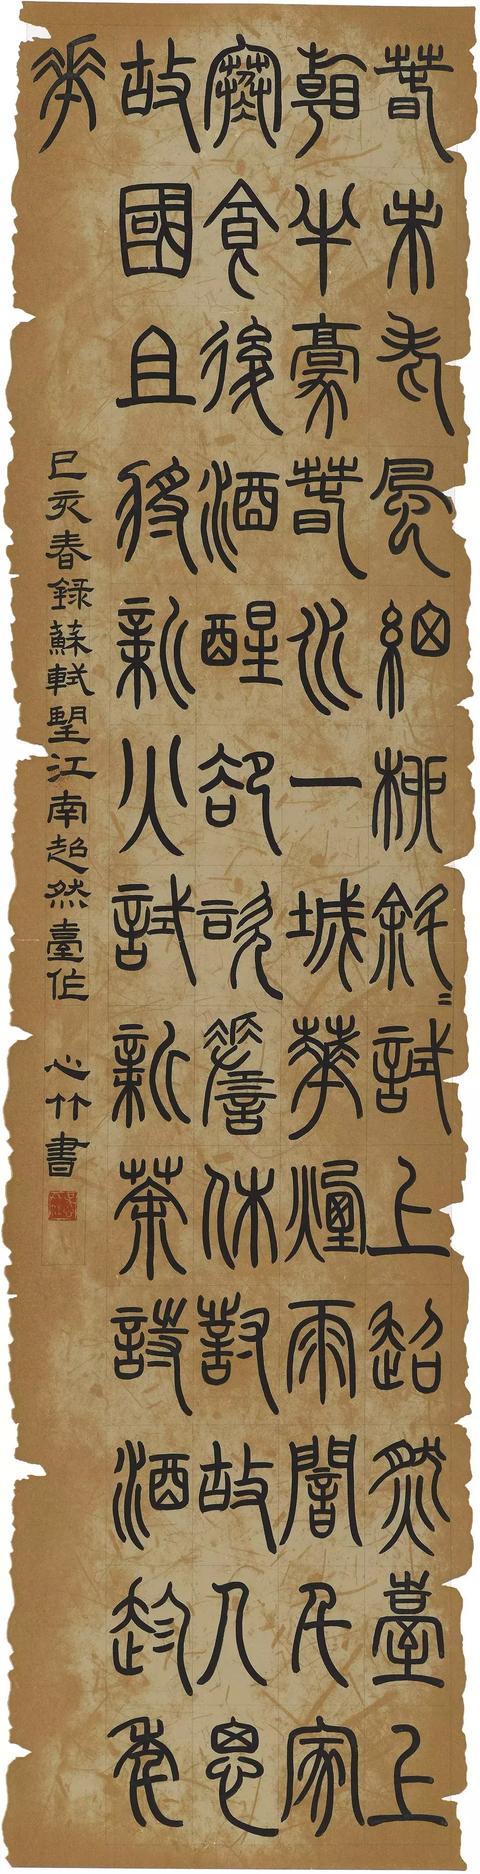 春未老風細柳斜〓試上超然臺上
看半豪春水一城華煙雨闇千家
寒食後酒醒卻咨嗟休對故人思
故國且將新火試新茶詩酒趁年
華
己亥春錄蘇軾望江南超然臺作 心竹書